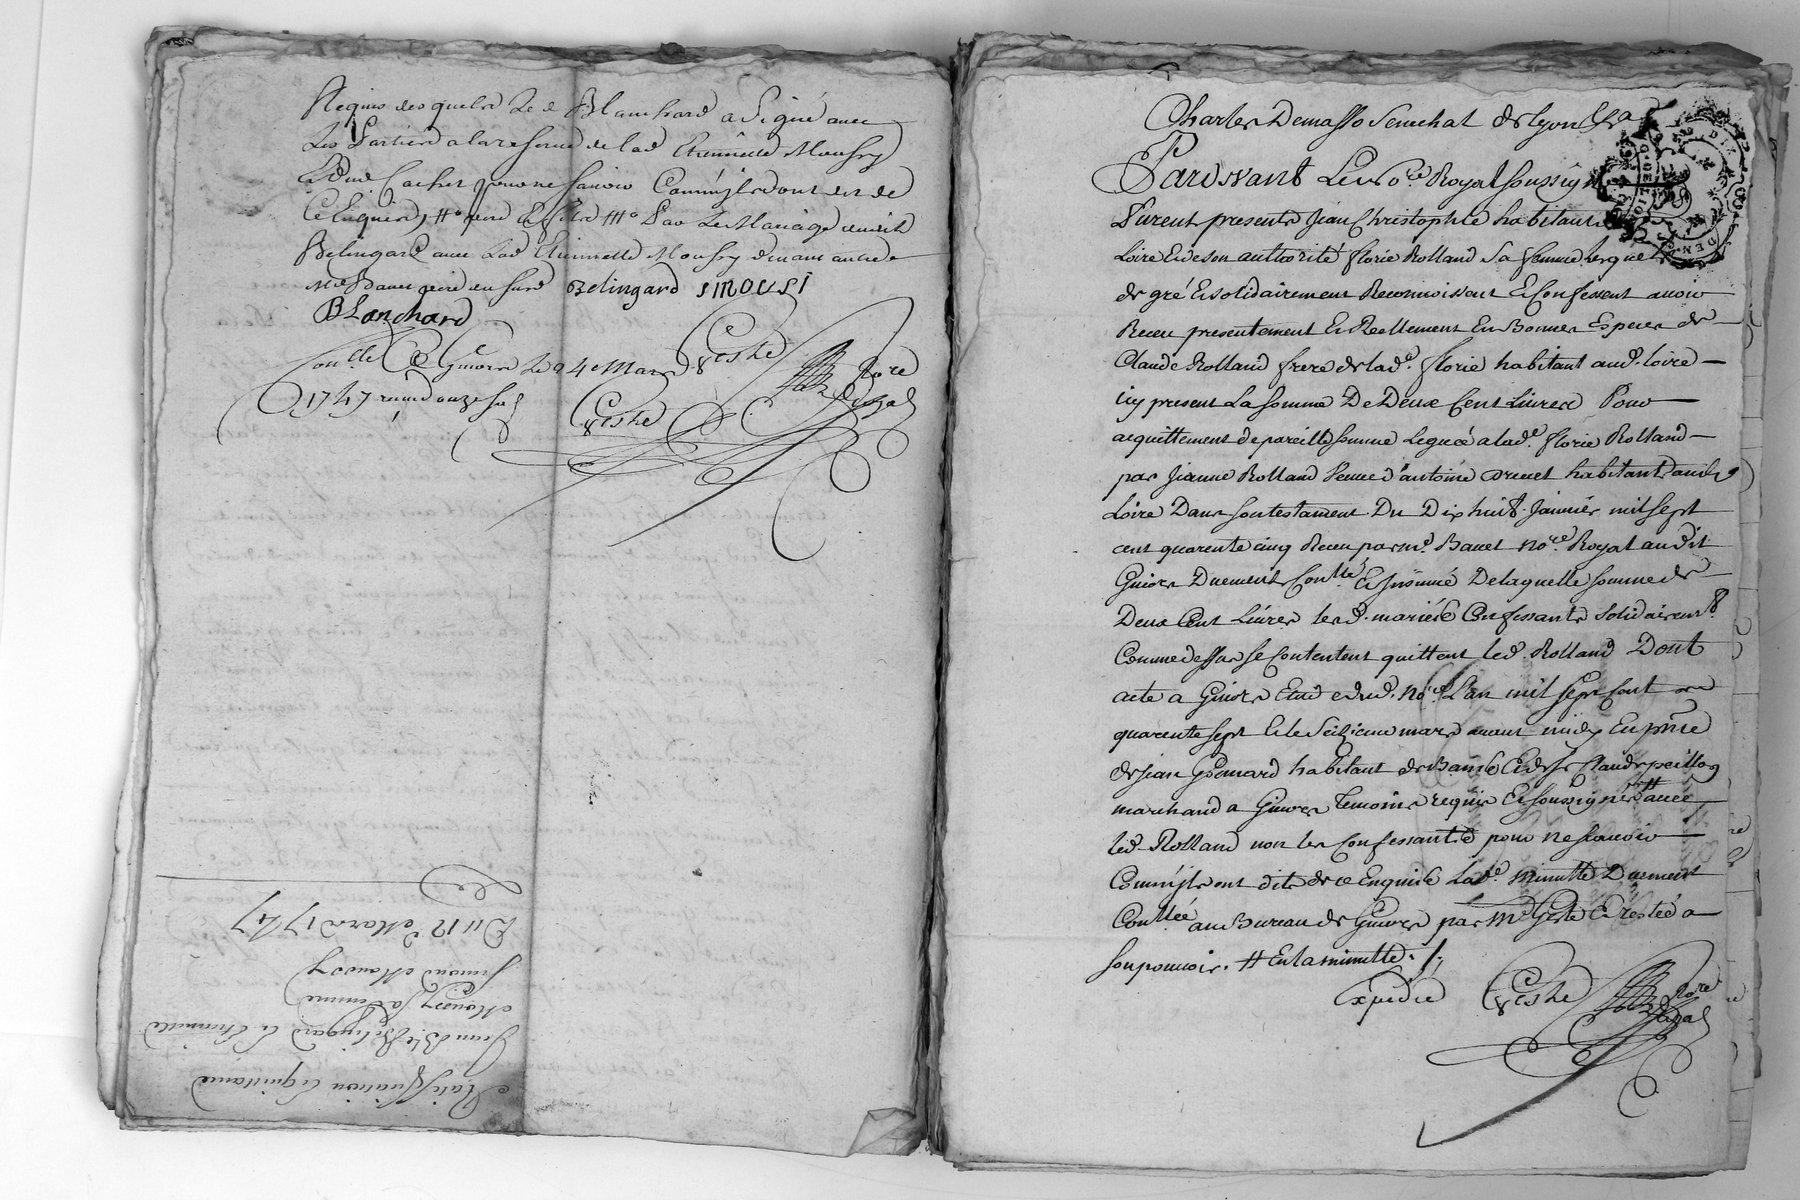 Requis desquels led Blanchard a signé avec
Les Parties a la reserve de lad Etiennette Moussy
pour ne sçavoir Comme ils ont dit de
Ce Enquis, Le Mariage
Belingard avec Lad Etiennette Mousy
Me Bauet Belingard SMOUSI
Blanchard
Conllé a Givors Le 24e Mars Geste Nore
1747 reçu douze sols Geste Royal
Du 12 Mars 1747
Simond Moussy
Mousy Sa femme
Jean Bte Belingard & Etiennette
Ratiffication & quittance
Charles Demasso Senechal de Lyon
Pardevant Le Nore Royal soussigné
Furent presents Jean Christophle habitant
Loire Et de son authorité florie Rolland Sa femme lesquels
de gré Et solidairement Reconnoissent Et Confessent avoir
Receu presentement Et Reellement En Bonnes Especes de
Claude Rolland frere de lad.e florie habitant aud. Loire
icy present La somme De Deux Cent Livres Pour
acquittement de pareille somme Leguéé a lad.e florie Rolland
par Jeanne Rolland veuve d'antoine habitante aud.
Loire Dans son testament Du Dix huit Janvier mil sept
cent quarente cinq Receu par me. Bauet Nore. Royal audit
Givors Duement Conllé Et Insinué De laquelle somme de
Deux Cent Livres les d. mariés Confessants solidairemt.
Comme dessus se Contentent quittent led. Rolland Dont
acte a Givors Etude dud. Nore. L'an mil sept Cent
quarente sept Et le Seizieme mars avant midy En pnce
de Jean Gomard habitant de Bans Et de sr Claude peillon
marchand a Givors Temoins requis Et soussignés # avec
led. Rolland non les Confessants pour ne sçavoir
Comme ils ont dit de ce Enquis Lad.e Minutte Duement
Conllée au Bureau de Givors par Me Geste Et restée a
son pouvoir. # En la minutte ./.
Expedié Geste Nore Royal